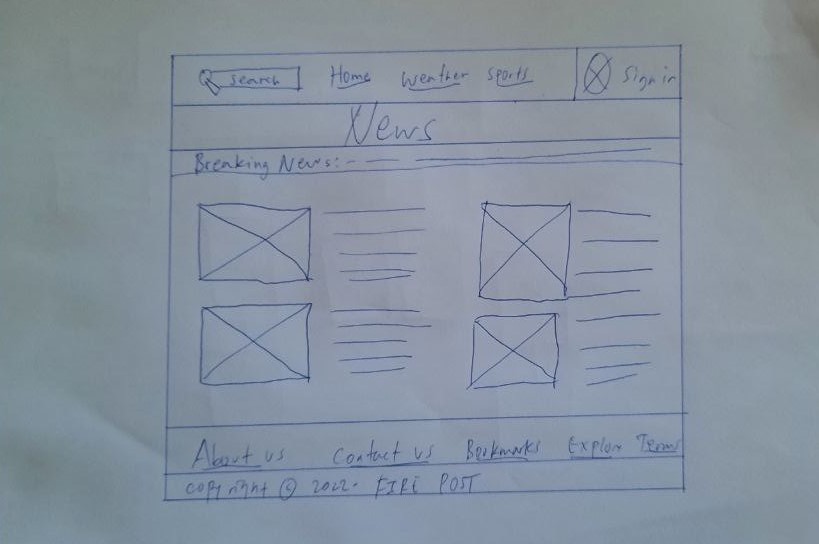 Search Home Weather Sports Sign in
News
Breaking News:-
About us Contact us Bookmarks Explore Terms
Copyright © 2022. FIRE POST